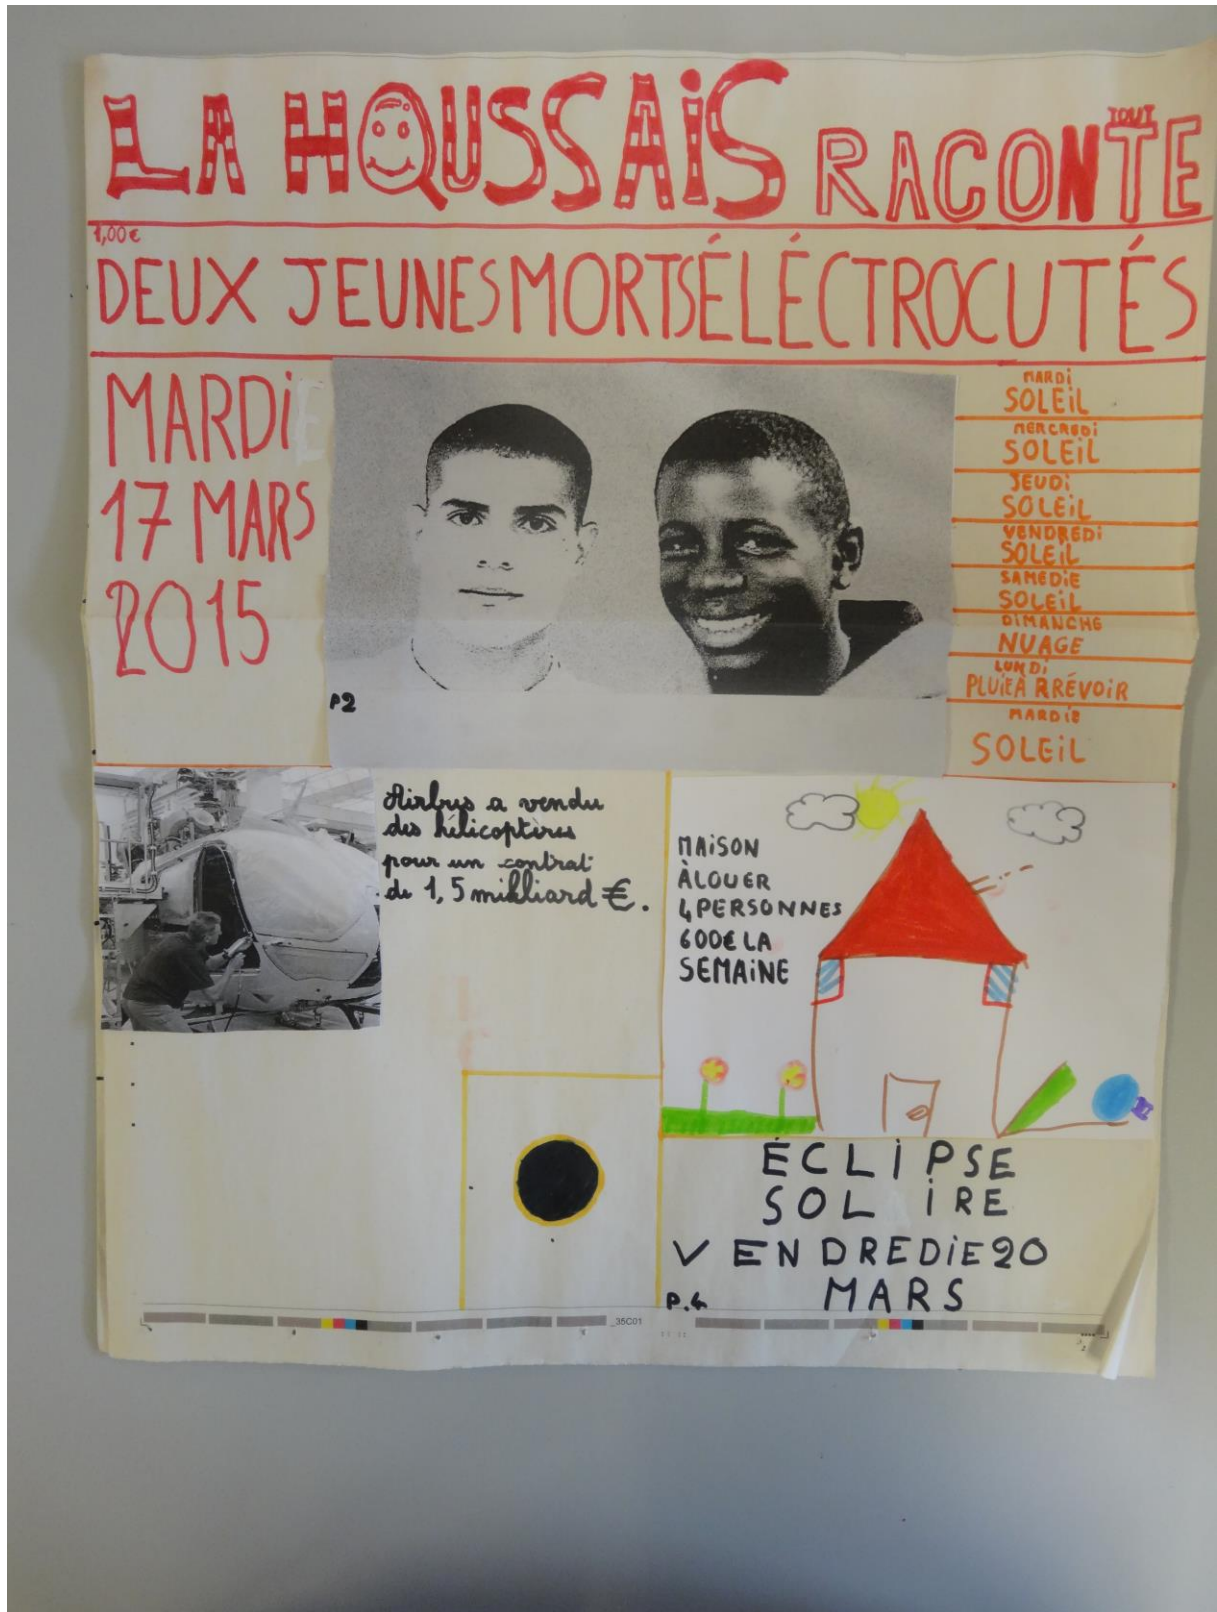 LA HOUSSAiS RACONTE
TOUT
1,00€
DEUX JEUNES MORTS ÉLÉCTROCUTÉS
MARDi
17 MARS
2015
P2
MARDi
SOLEiL
MERCREDi
SOLEiL
JEUDi
SOLEiL
VENDREDi
SOLEiL
SAMEDiE
SOLEiL
DIMANCHE
NUAGE
LUNDi
PLUiE À RRÉVOiR
MARDiE
SOLEiL
Airbus a vendu
des hélicoptères
pour un contrat
de 1,5 milliard €.
MAiSON
À LOUER
4 PERSONNES
600€ LA
SEMAiNE
ÉCLiPSE
SOL iRE
VENDREDiE 20
MARS
P.4
_35C01